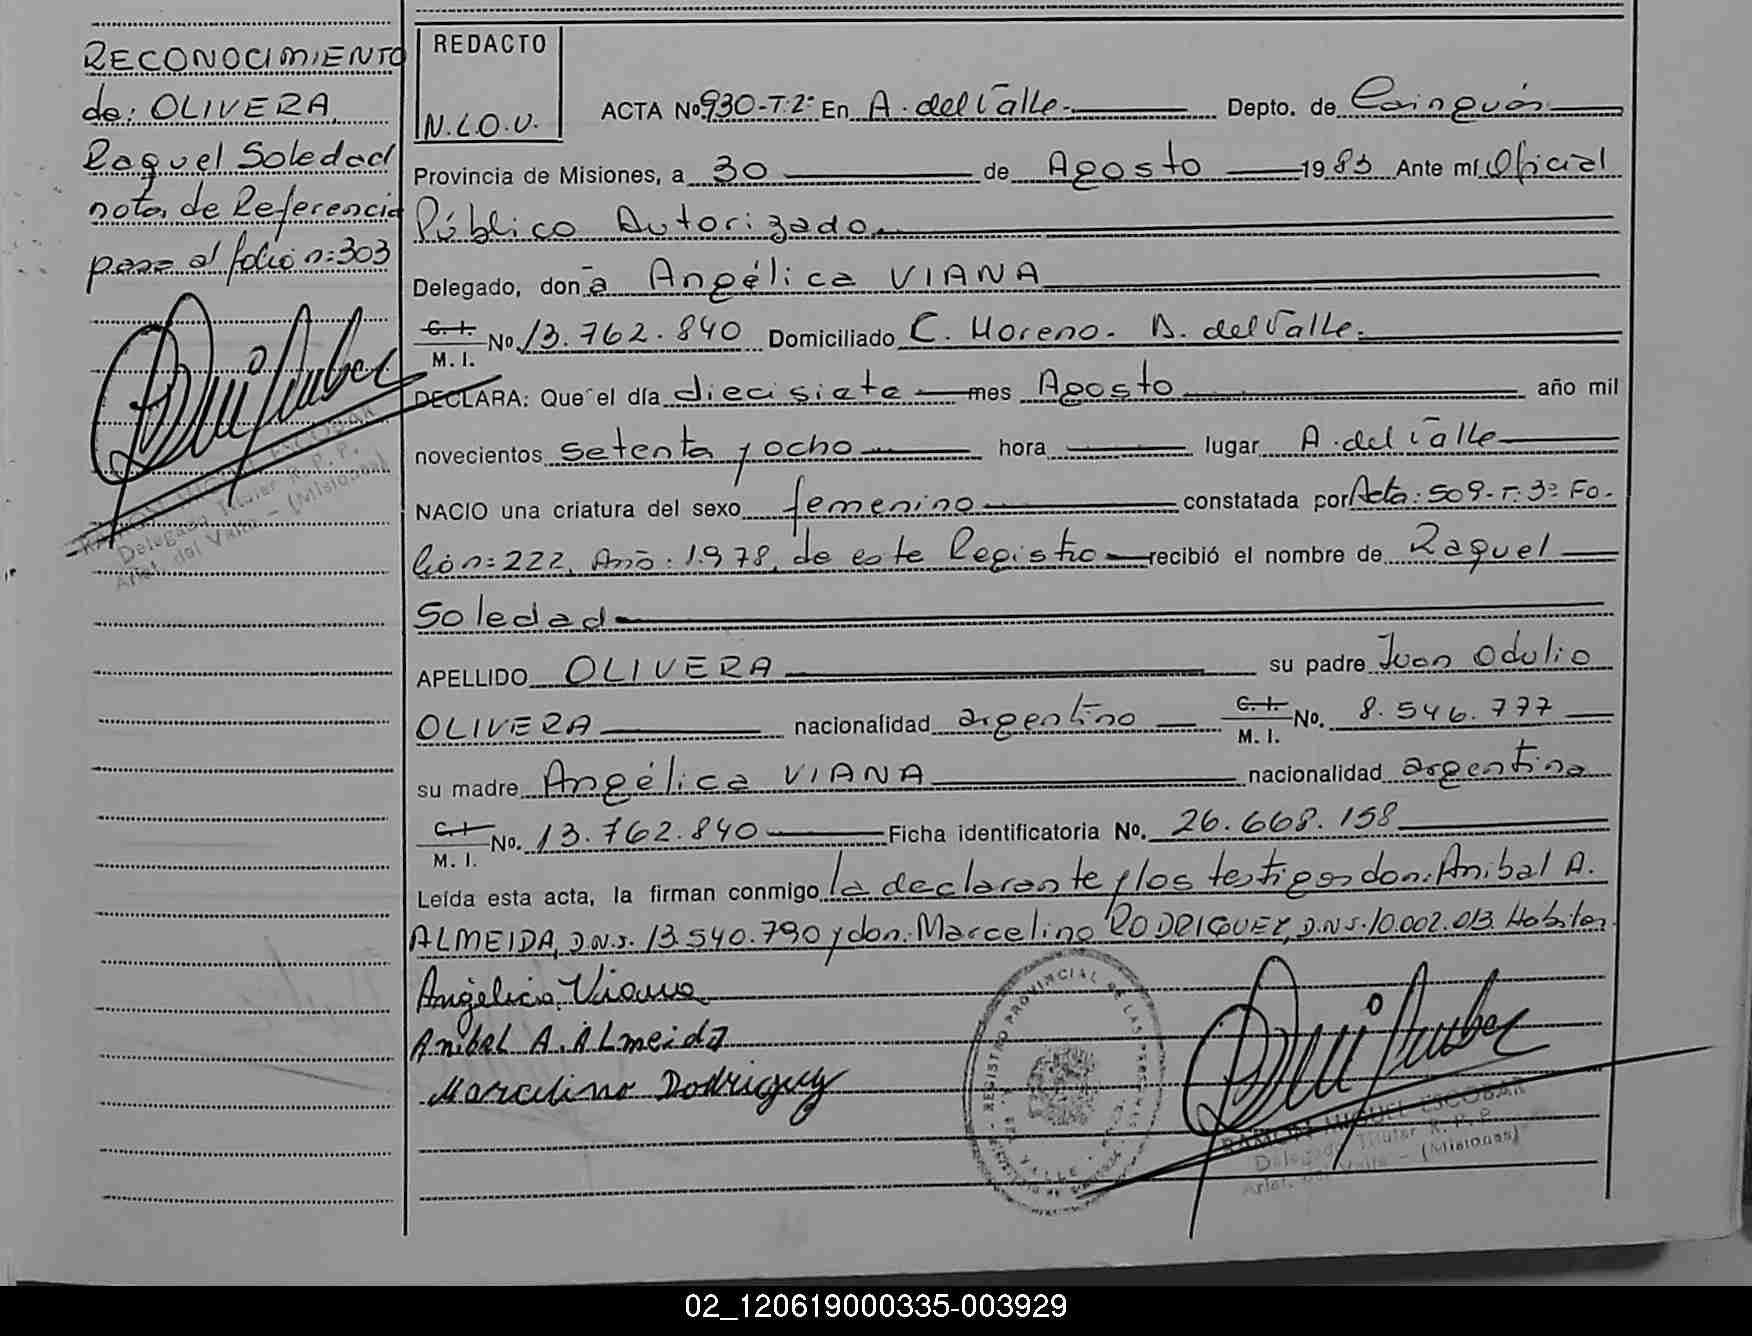 RECONOCIMIENTO
de: OLIVERA
Raquel Soledad
nota de Referencia
pasa al folio n: 303
REDACTO
N.L.O.V.
ACTA No. 930-T:2º En A. del Valle. Depto. de Cainguás
Provincia de Misiones, a 30 de Agosto 1983 Ante mí Oficial
Público Autorizado
Delegado, doña Angélica VIANA
C. I. M. I. No. 13.762.840 Domiciliado C. Moreno - A. del Valle.
DECLARA: Que el día diecisiete mes Agosto año mil
novecientos setenta y ocho hora lugar A. del Valle
NACIO una criatura del sexo femenino constatada por Acta: 509-T: 3º Fo-
lio n: 222, Año: 1.978, de este Registro recibió el nombre de Raquel
Soledad
APELLIDO OLIVERA su padre Juan Odulio
OLIVERA nacionalidad argentino C. I. M. I. No. 8.546.777
su madre Angélica VIANA nacionalidad argentina
C. I. M. I. No. 13.762.840 Ficha identificatoria No. 26.668.158
Leída esta acta, la firman conmigo la declarante y los testigos don: Anibal A.
ALMEIDA, D.N.I. 13.540.790 y don: Marcelino RODRIGUEZ, D.N.I. 10.002.013. Habiles
Angélica Viana
Anibal A. Almeida
Marcelino Rodriguez
REGISTRO PROVINCIAL DE LAS PERSONAS
VALLE
RAMON MIGUEL ESCOBAR
Delegado Titular R. P. P.
Arist. del Valle - (Misiones)
RAMON MIGUEL ESCOBAR
Delegado Titular R. P. P.
Arist. del Valle - (Misiones)
02_120619000335-003929